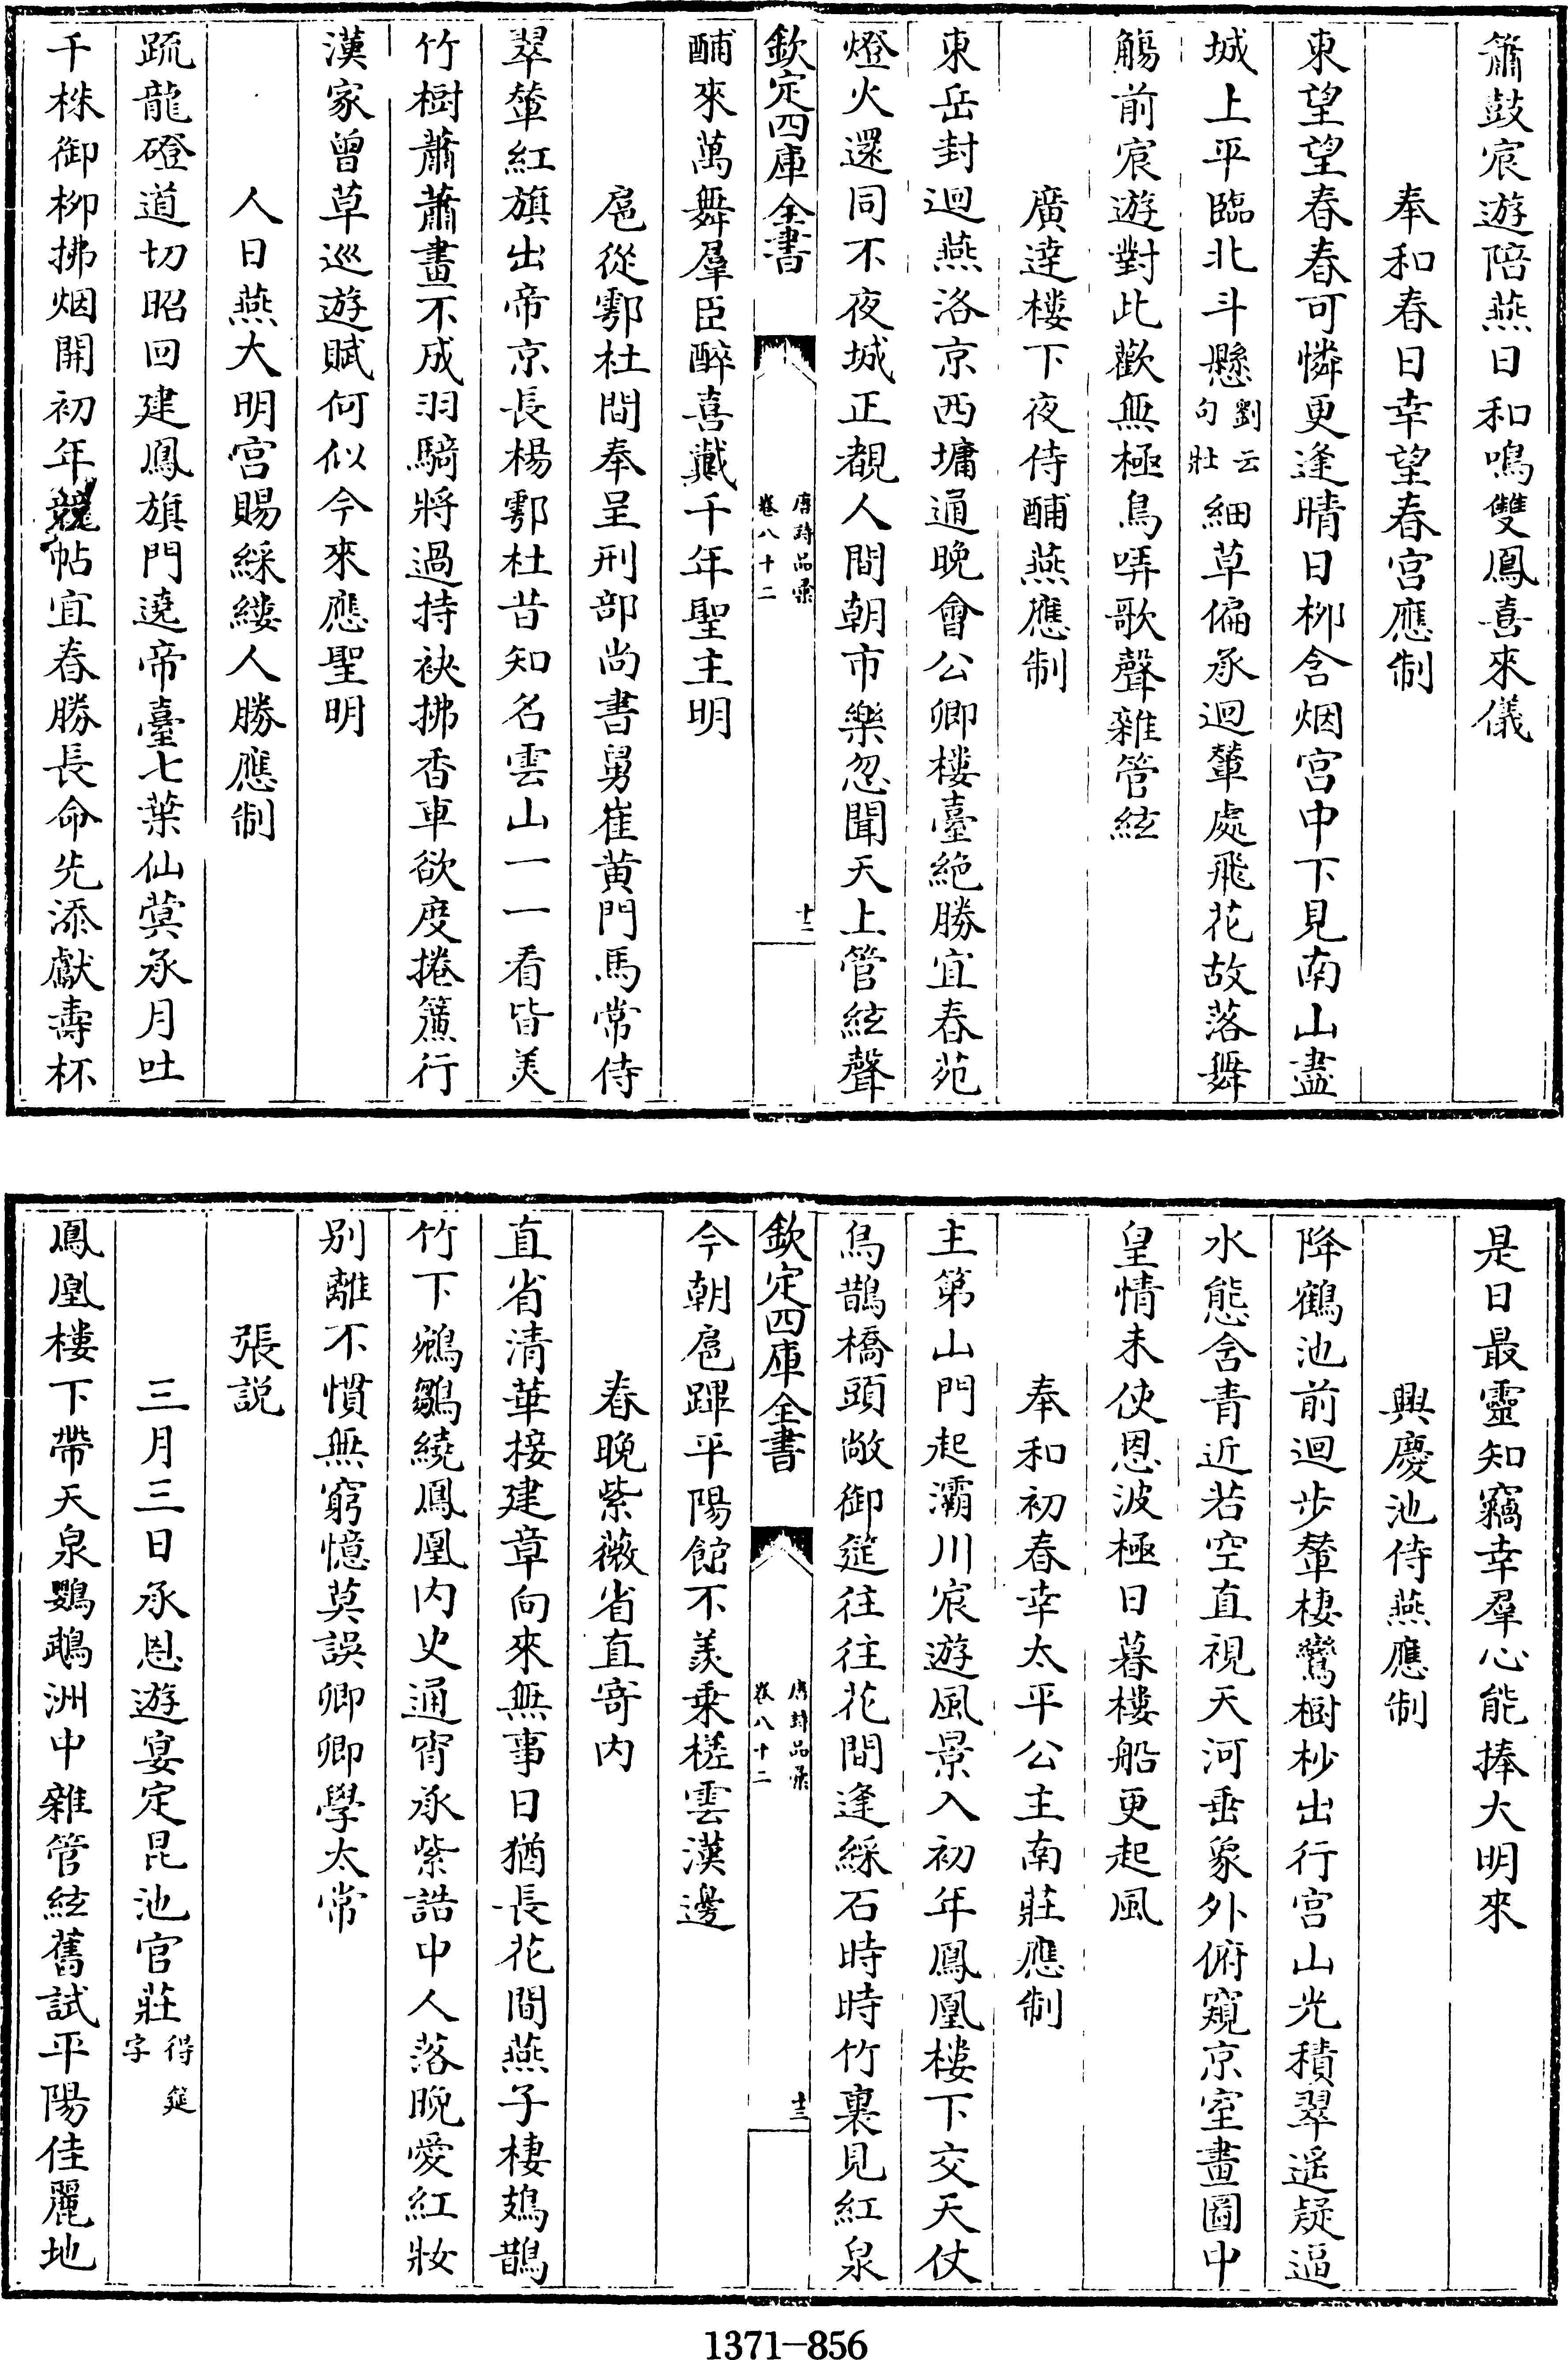 簫鼓宸遊陪燕日和鳴雙鳳喜來儀
奉和春日幸望春宫應制
東望望春春可憐更逢晴日柳含烟宫中下見南山盡
城上平臨北斗懸劉云句壯細草偏承迴輦處飛花故落舞
觴前宸遊對此歡無極鳥哢歌聲雜管絃
廣達樓下夜侍酺燕應制
東岳封迴燕洛京西墉通晚會公卿樓臺絶勝宜春苑
燈火還同不夜城正覩人間朝市樂忽聞天上管絃聲
欽定四庫全書
唐詩品彙
卷八十二
十二
酺來萬舞羣臣醉喜戴千年聖主明
扈從鄠杜間奉呈刑部尚書舅崔黄門馬常侍
翠輦紅旗出帝京長楊鄠杜昔知名雲山一一看皆美
竹樹蕭蕭畫不成羽騎將過持袂拂香車欲度捲簾行
漢家曾草巡遊賦何似今來應聖明
人日燕大明宫賜綵縷人勝應制
疏龍磴道切昭回建鳳旗門遶帝臺七葉仙蓂承月吐
千株御柳拂烟開初年競帖宜春勝長命先添獻壽杯
是日最靈知竊幸羣心能捧大明來
興慶池侍燕應制
降鶴池前迴步輦棲鸞樹杪出行宫山光積翠遥疑逼
水態含青近若空直視天河垂象外俯窺京室畫圖中
皇情未使恩波極日暮樓船更起風
奉和初春幸太平公主南莊應制
主第山門起灞川宸遊風景入初年鳳凰樓下交天仗
烏鵲橋頭敞御筵往往花間逢綵石時時竹裏見紅泉
欽定四庫全書
唐詩品彙
卷八十二
十三
今朝扈蹕平陽館不羡乗槎雲漢邊
春晚紫薇省直寄内
直省清華接建章向來無事日猶長花間燕子棲鳷鵲
竹下鵷鶵繞鳳凰内史通宵承紫誥中人落晚愛紅妝
别離不慣無窮憶莫誤卿卿學太常
張説
三月三日承恩遊宴定昆池官莊得筵字
鳳凰樓下帶天泉鸚鵡洲中雜管絃舊試平陽佳麗地
1371-856